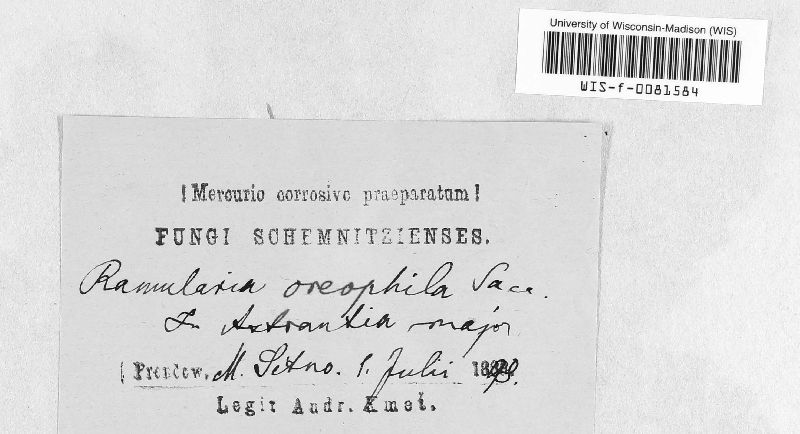 University of Wisconsin-Madison (WIS)
WIS-f-0081584
! Mercurio corrosivo praeparatum !
FUNGI SCHEMNITZIENSES.
Ramularia oreophila Sacc.
In Astrantia major
Prenčow, M. Sitno. 1. Julii
Legit Andr. Kmeť.